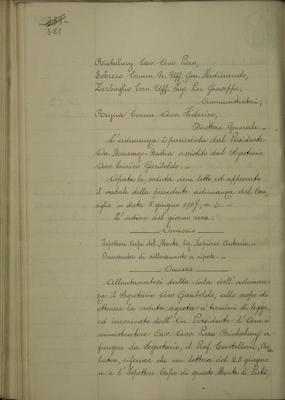 381
Richelmy Cav. Avv. Piero,
Sobrero Comm. Gr. Uff. Gen. Ferdinando,
Zerboglio Cav. Uff. Ing. Pier Giuseppe,
Amministratori;
Rogna Comm. Avv. Federico,
Direttore Generale.
L'adunanza è presieduta dal Presidente
On. assistito dal Segretario
Avv. Enrico Garibaldo.
Aperta la seduta viene letto ed approvato
il verbale della precedente adunanza del Con-
siglio in data 8 giugno 1907, n.
L'ordine del giorno reca:
Omissis
Ispettore Capo del Monte, Sig. Antonio.
Domanda di collocamento a riposo.
Omissis
Allontanatosi dalla sala dell'adunan-
za il Segretario Avv. Garibaldo, allo scopo di
ottenere la seduta segreta a termini di legge,
ed incaricato dall'On. Presidente l'Am-
ministratore Cav. Avv. Piero Richelmy a
fungere da Segretario, il Prof. Castellari, Re-
latore, riferisce che con lettera del 28 giugno
u. s. l'Ispettore Capo di questo Monte di Pietà,